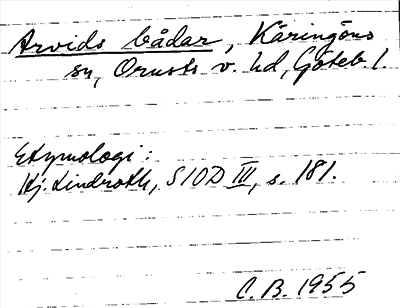 Arvids bådar, Käringöns
sn, Orusts v. hd, Göteb. l.
Etymologi:
Hj. Lindroth, SIOD III, s. 181.
C. B. 1955